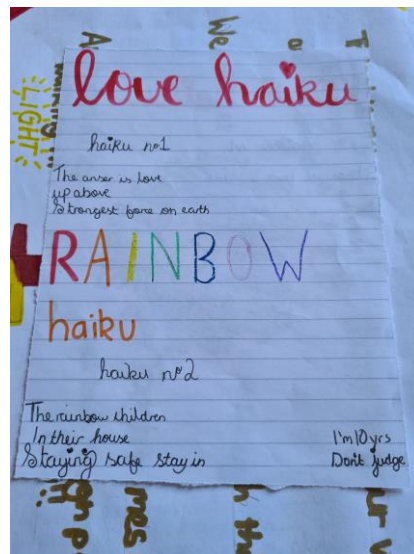 love haiku
haiku no1
The anser is love
up above
Strongest force on earth
RAINBOW
haiku
haiku no2
The rainbow children
In their house
Staying safe stay in
I'm 10 yrs
Don't judge
LIGHT
We